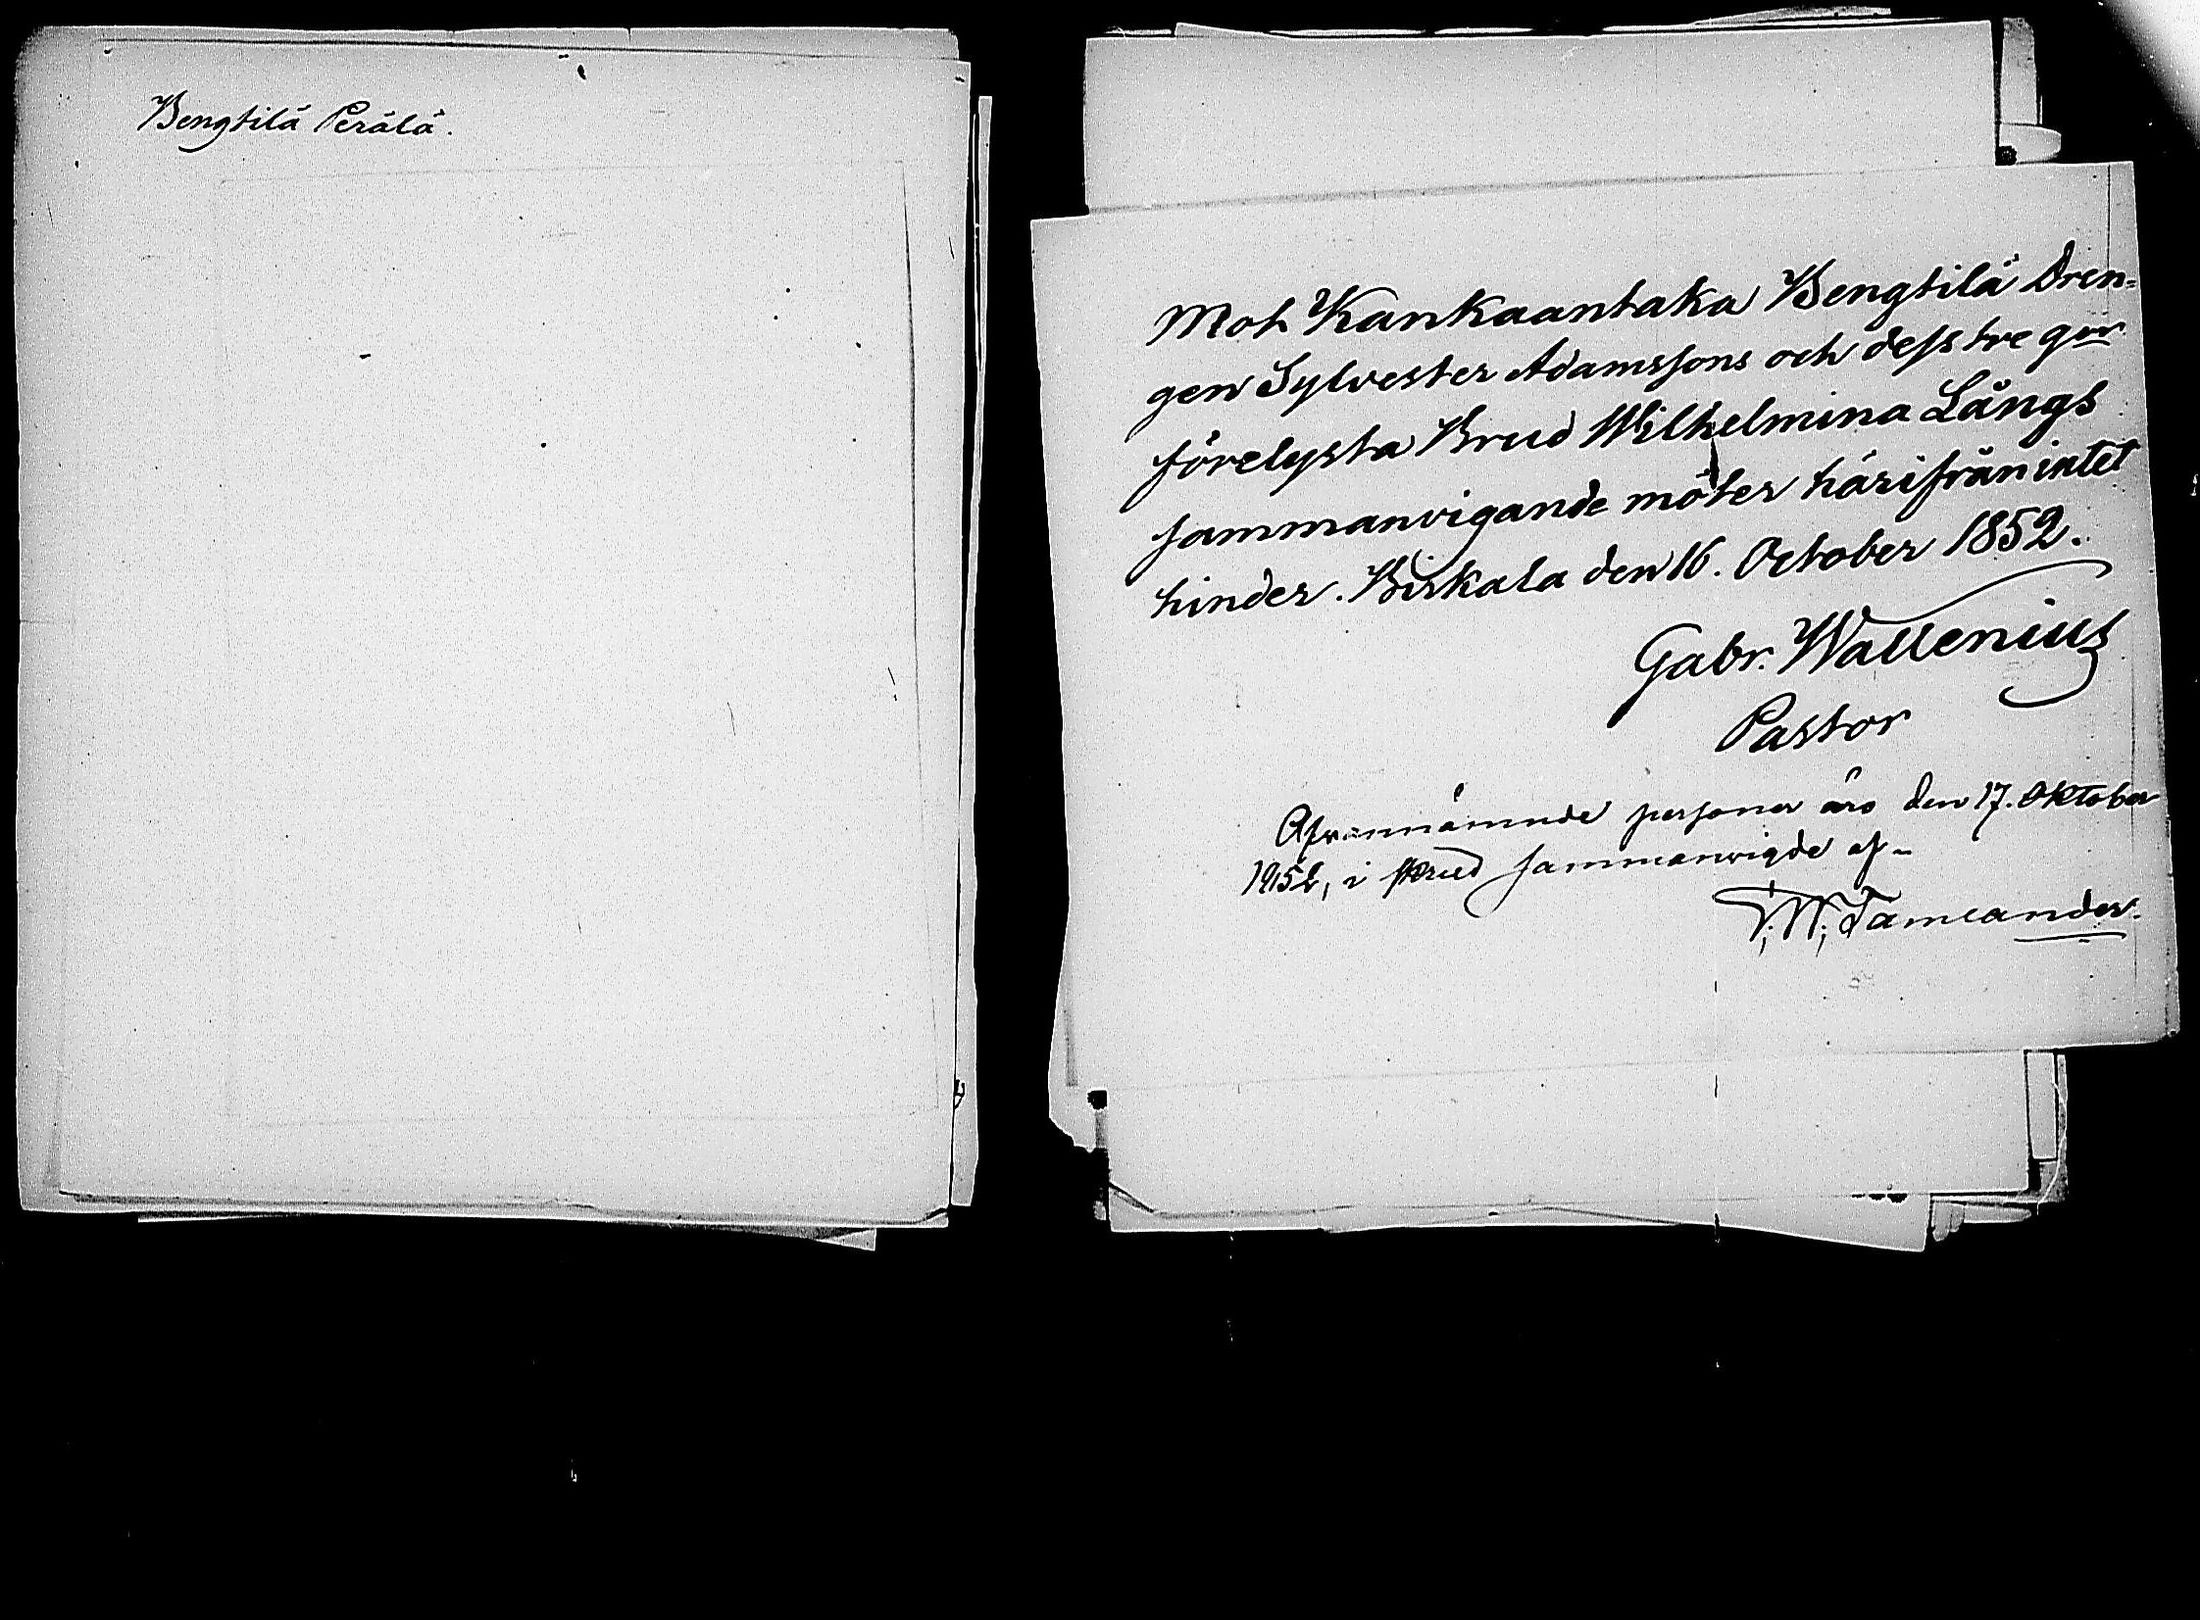 Bengtilä Perälä.
Mot Kankaantaka Bengtilä Dren-
gen Sylvester Adamssons och dess tre ggr
förelysta Brud Wilhelmina Långs
sammanvigande möter härifrån intet
hinder. Birkala den 16. October 1852.
Gabr. Wallenius
Pastor
Ofvannämnde personer äro den 17. Oktober
1852, i sammanvigde af
Tamlander.